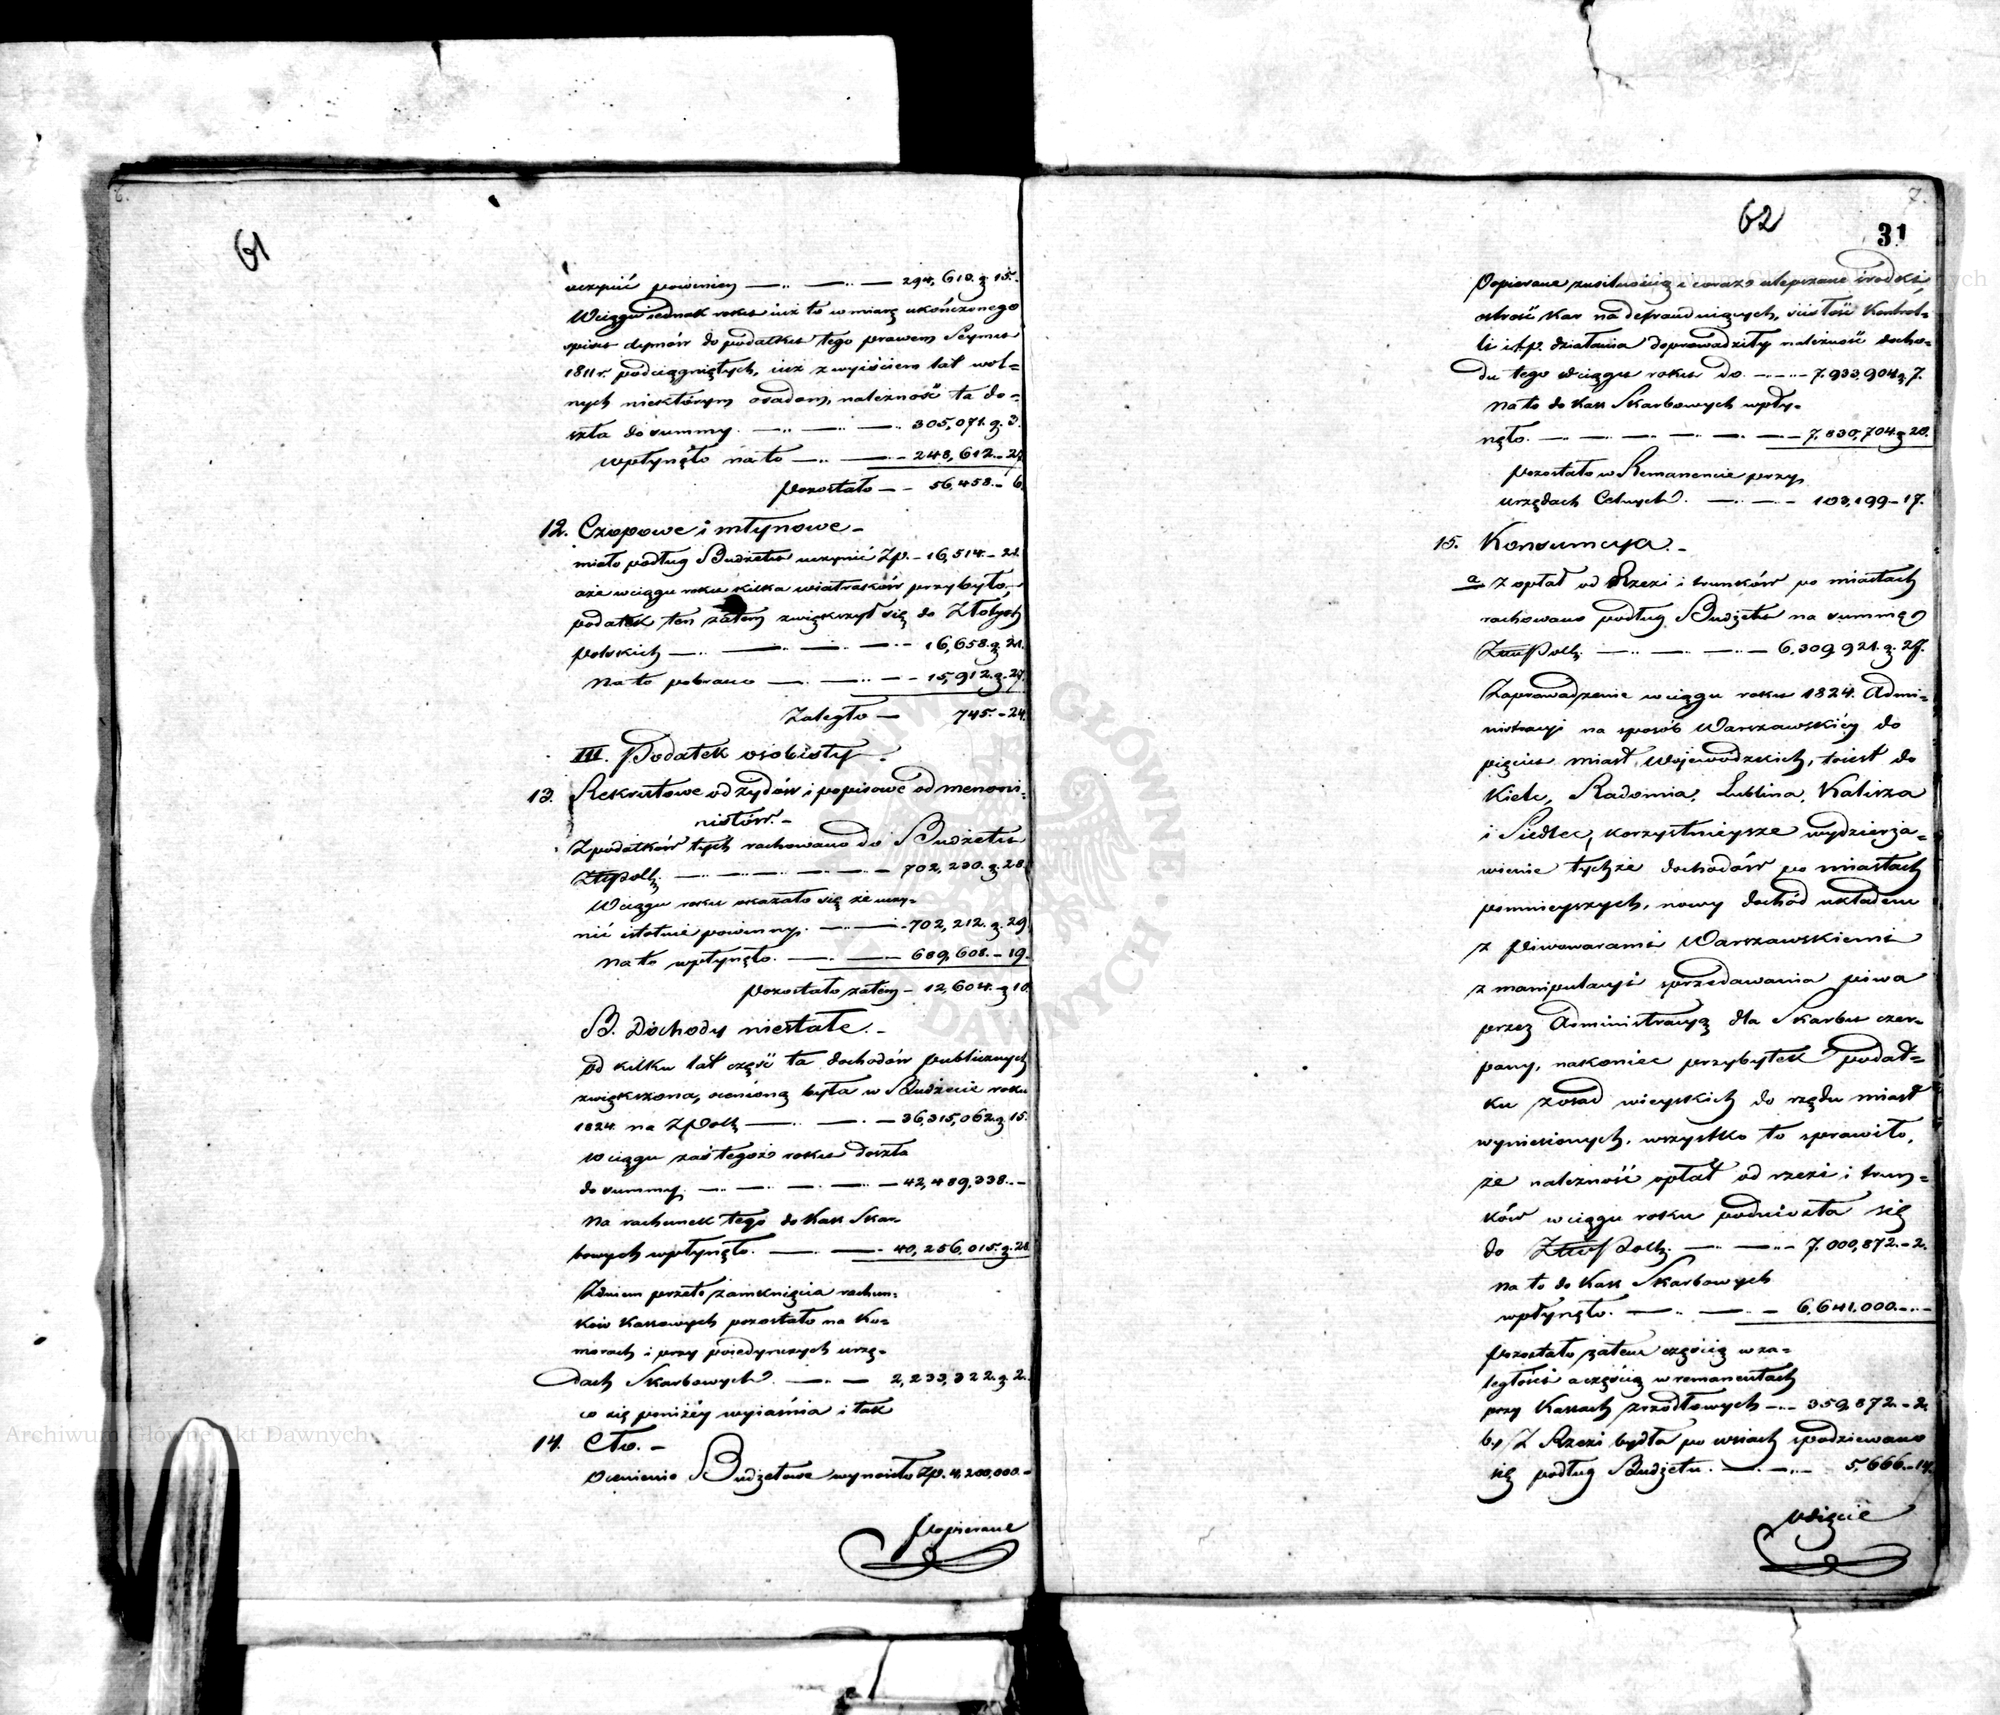 6.
61
uczynić powinien — 294,610. g 15.
W ciągu jednak roku iuż to w miarę ukończonego
spisu dymów do podatku tego prawem Seymu
1811 r. podciągniętych, iuż z wyiściem lat wol=
nych niektórym osadom, należność ta do=
szła do summy. — 305,071. g. 3.
wpłynęło na to — 248,612. - 27
Pozostało — 56,458. - 6.
12. Czopowe i młynowe -
miało podług Budżetu uczynić Zp. - 16,514. - 21.
aże w ciągu roku kilka wiatraków przybyło,
podatek ten zatem zwiększył się do Złotych
Polskich — 16,658. g. 21.
Na to pobrano — 15,912. g. 27.
Zaległo — 745. - 24.
III. Podatek osobisty.
13. Rekrutowe od żydów i popisowe od menoni=
nistów. -
Z podatków tych rachowano do Budżetu
Złlpolh. — 702,230. g. 28.
W ciągu roku okazało się że uczy=
nić istotnie powinny. — 702,212. g. 29
Na to wpłynęło. — 689,608. - 19.
Pozostało zatem - 12,604. g 10.
B. Dochody niestałe. -
Od kilku lat część ta dochodów publicznych
zwiększona, oceniona była w Budżecie roku
1824. na ZPolh — 36,315,062. g 15.
w ciągu zaś tegoż roku doszła
do summy. — 42,489,338. -
Na rachunek tego do Kass Skar=
bowych wpłynęło. — 40,256,015. g. 28
Z dniem przeto zamknięcia rachun=
ków Kassowych pozostało na Ko=
morach i przy poiedynczych urzę=
dach Skarbowych. — 2,233,322. g 2.
co się poniżey wyiaśnia i tak
14. Cło. -
Ocenienie Budżetowe wynosiło Zp. 4,200,000. -
Popierane
7.
62
31
Popierane z usilnością i coraz ulepszane środki
ostrość kar na defrauduiących, ścisłość Kontrol=
li i t.p. działania doprowadziły należność docho=
du tego w ciągu roku do — 7,933,904 g 7.
Na to do Kass Skarbowych wpły=
nęło. — 7,830,704. g 20.
Pozostało w Remanencie przy
urzędach Celnych. — 103,199 - 17.
15. Konsumcya. -
a Z opłat od Rzezi i trunków po miastach
rachowano podług Budżetu na summę
ZłłPolh. — 6,309,921. g. 27.
Zaprowadzenie w ciągu roku 1824. Admi=
nistracyi na sposób Warszawskiey do
pięciu miast Wojewódzkich, toiest do
Kielc, Radomia, Lublina, Kalisza
i Siedlec, korzystnieysze wydzierża=
wienie tychże dochodów po miastach
pomnieyszych, nowy dochód układem
z Piwowarami Warszawskiemi
z manipulacyi sprzedawania piwa
przez Administracyą dla Skarbu czer=
pany, nakoniec przybytek podat=
ku z osad wieyskich do rzędu miast
wyniesionych, wszystko to sprawiło,
że należność opłat od rzezi i trun=
ków w ciągu roku podniosła się
do ZłłPolh. — 7,000,872. - 2.
Na to do Kass Skarbowych
wpłynęło. — 6,641,000. -
Pozostało zatem częścią w za=
ległości a częścią w remanentach
przy Kassach źrzódłowych — 359,872. - 2.
b., Z Rzezi bydła po wsiach spodziewano
się podług Budżetu. — 5,666. - 14.
Wdzięcie